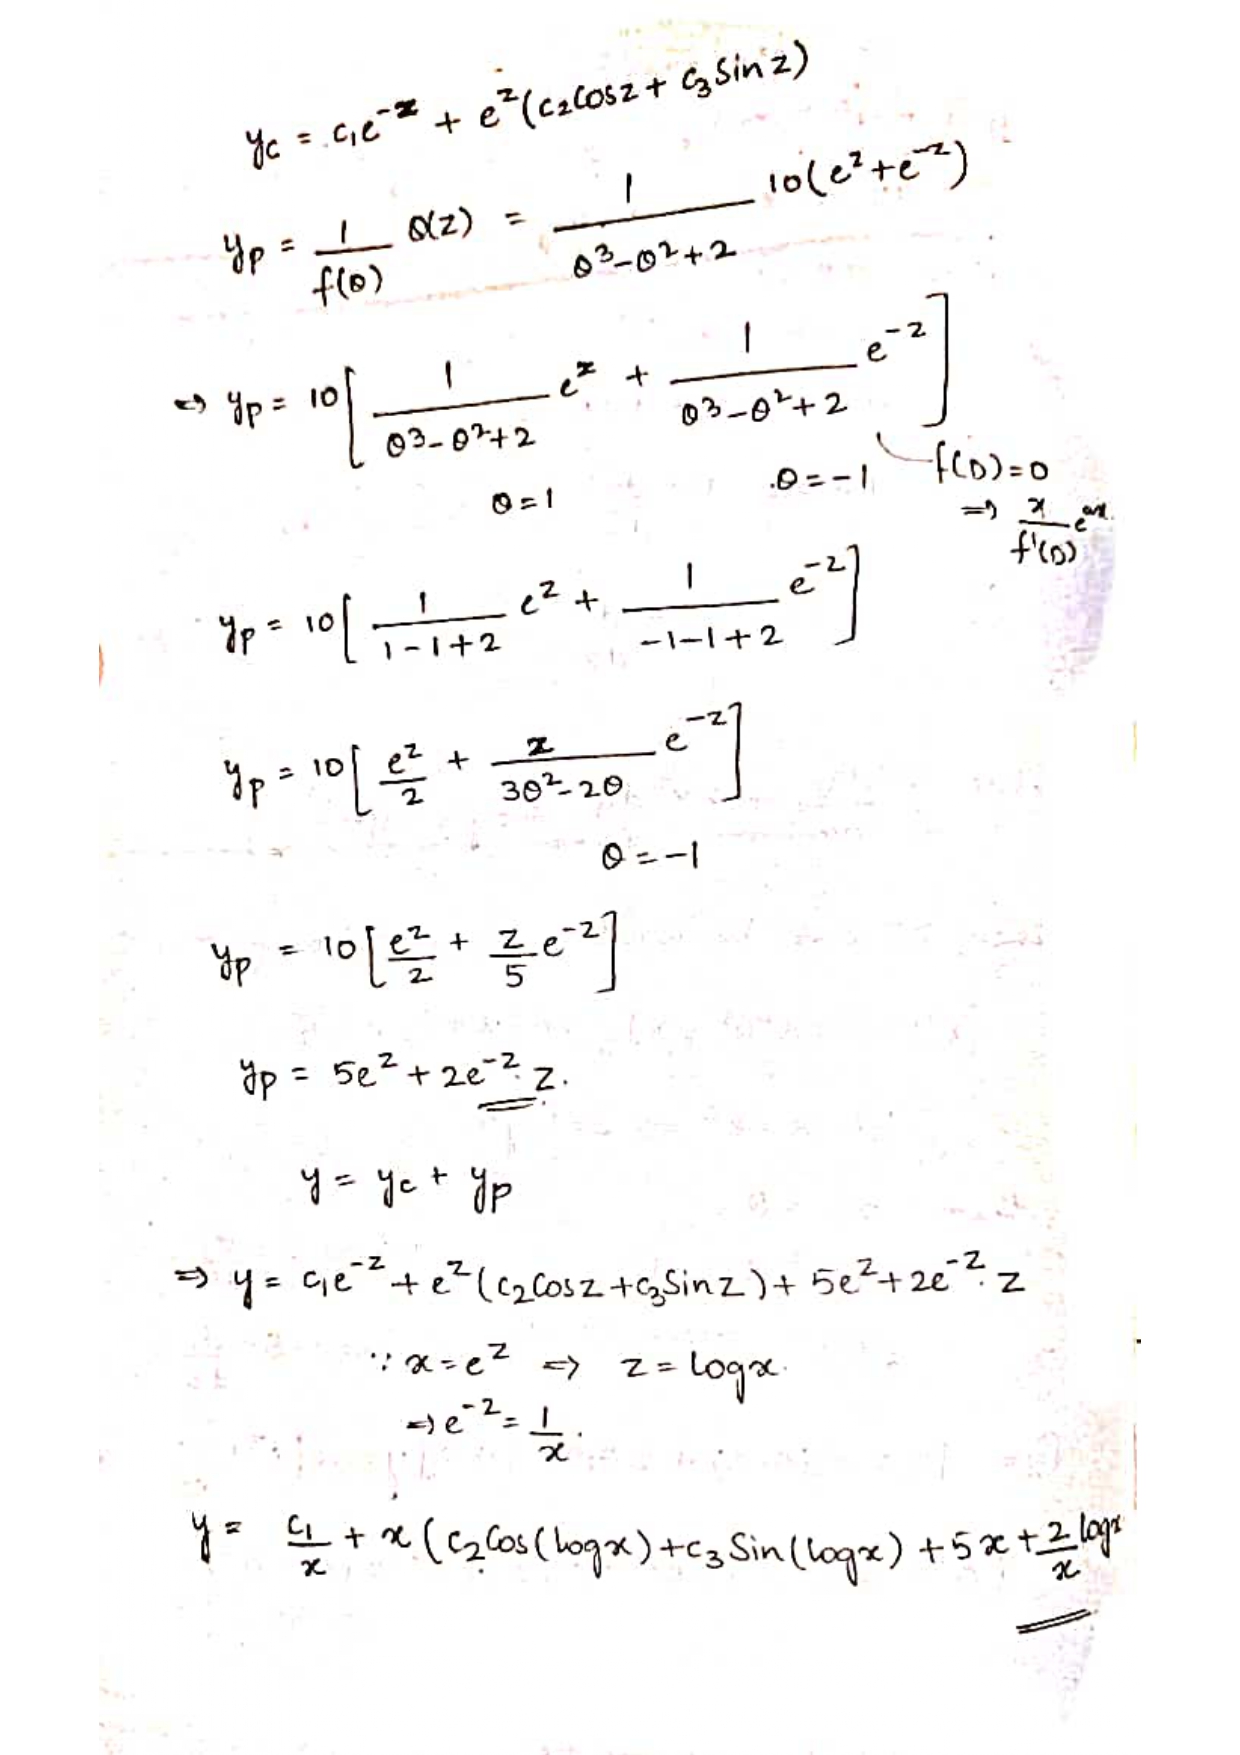 y_c = c₁e^{-z} + e^z(c₂Cosz + c₃Sinz)
y_p = 1/f(θ) Q(z) = 1/(θ³-θ²+2) 10(e^z + e^{-z})
⇒ y_p = 10[ 1/(θ³-θ²+2) e^z + 1/(θ³-θ²+2) e^{-z} ]
θ=1 θ=-1 f(D)=0
⇒ x/f'(D) e^{ax}.
y_p = 10[ 1/(1-1+2) e^z + 1/(-1-1+2) e^{-z} ]
y_p = 10[ e^z/2 + z/(3θ²-2θ) e^{-z} ]
θ=-1
y_p = 10[ e^z/2 + z/5 e^{-z} ]
y_p = 5e^z + 2e^{-z}. z.
y = y_c + y_p
⇒ y = c₁e^{-z} + e^z(c₂Cosz + c₃Sinz) + 5e^z + 2e^{-z}. z
∵ x = e^z ⇒ z = logx.
⇒ e^{-z} = 1/x.
y = c₁/x + x(c₂Cos(logx) + c₃Sin(logx) + 5x + 2/x logx